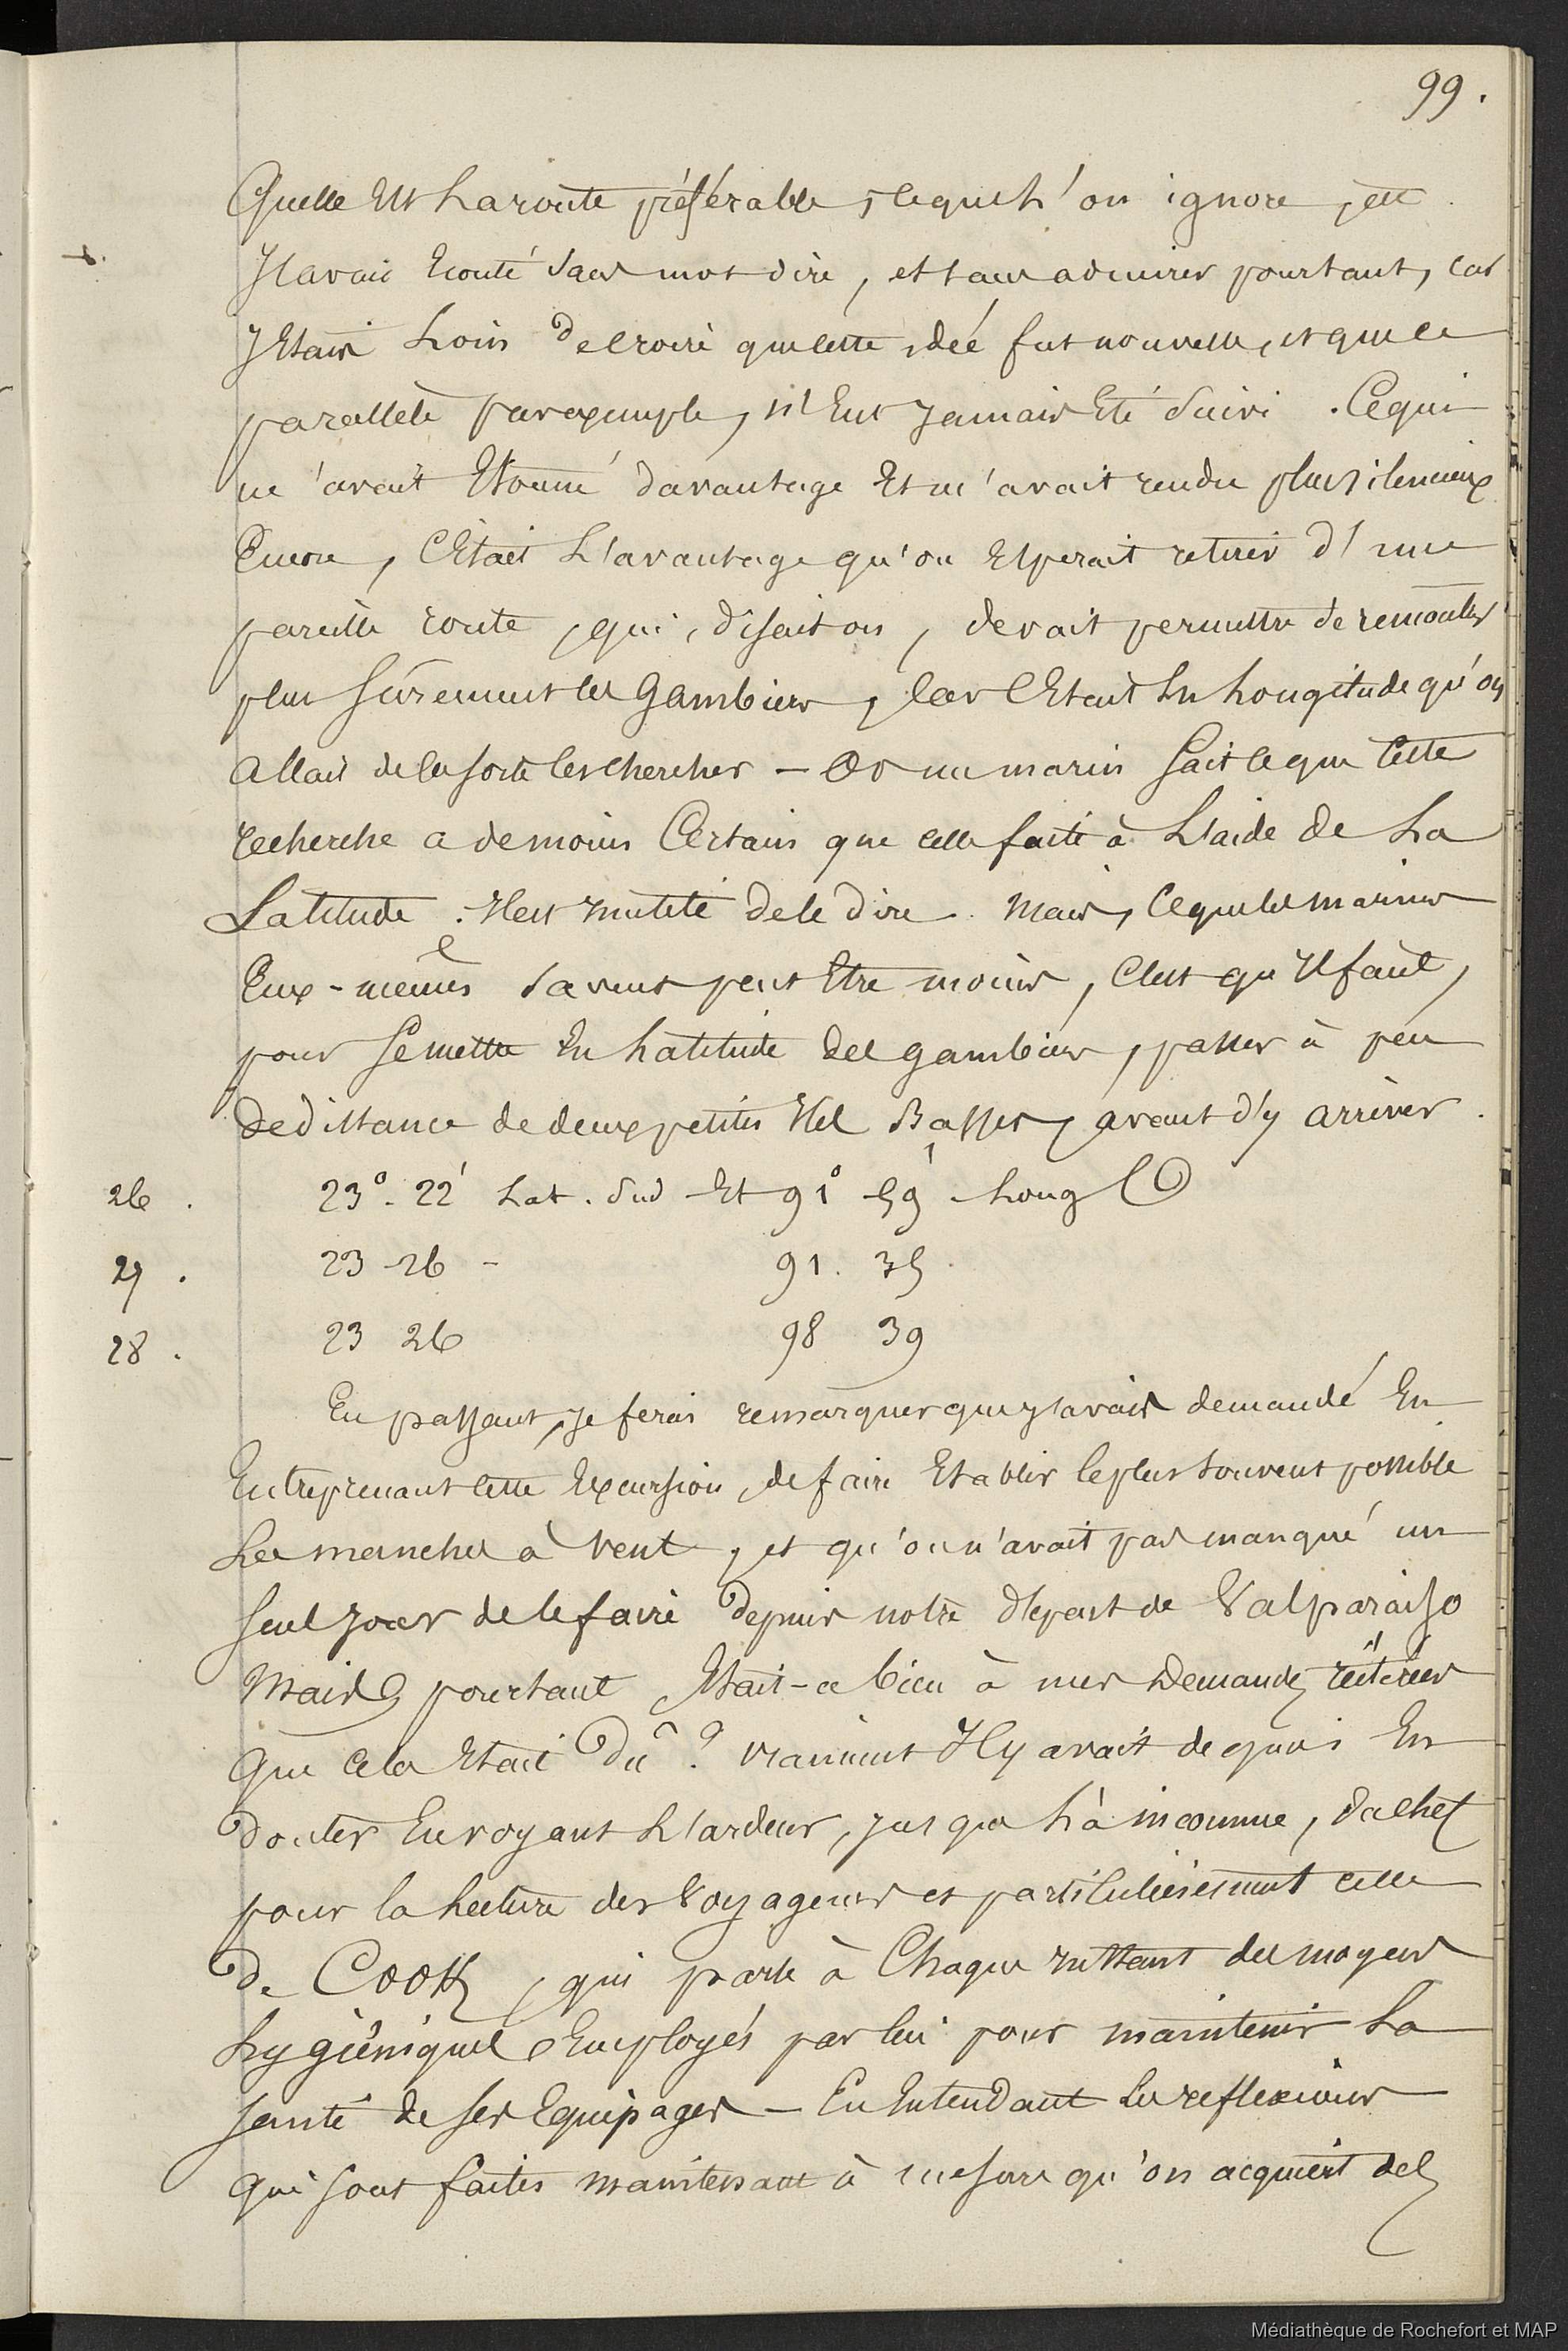 99.
Quelle Est La route préférable, ce que L'on ignore, etc.
J'avais Ecouté Sans mot dire, et sans admirer pourtant, car
J'Etais Loin de croire que cette idée fut nouvelle, et que ce
parallèle par exemple, n'Eut Jamais Eté Suivi. Ce qui
m'avait Etonné davantage Et m'avait rendu plus silencieux
Encore, c'Etait L'avantage qu'on Esperait retirer d'une
pareille route, qui, disait on, devait permettre de remonter
plus sûrement les Gambiers, Car c'Etait En Longitude qu'on
allait de la sorte les chercher – Or un marin sait ce que cette
recherche a de moins Certain que celle faite à L'aide de La
Latitude. Il est Inutile de le dire. Mais, Ce que les marins
Eux-mêmes Savent peut Etre moins, c'est qu'Il faut,
pour se mettre En Latitude des gambiers, passer à peu
de distance de deux petites Iles Basses, avant d'y arriver.
26. 23° - 22' Lat. Sud Et 91° 59' Long O
27. 23 - 26 - 91. 35
28. 23 26 98 39
En passant, je ferai remarquer que j'avais demandé En
Entreprenant cette Excursion, de faire Etablir le plus souvent possible
Les manches à vent, et qu'on n'avait pas manqué un
seul Jour de le faire depuis notre départ de Valparaiso
Mais, pourtant Etait-ce bien à mes Demandes réitérées
que cela Etait dû ? vraiment Il y avait de quoi En
douter En voyant L'ardeur, jusque Là inconnue, d'achet
pour la Lecture des Voyageurs et particulièrement celle
de Cook, qui parle à Chaque Instant des moyens
hygièniques Employés par lui pour maintenir La
santé de ses Equipages – En Entendant Les reflexions
qui sont faites maintenant à mesure qu'on acquiert des
Médiathèque de Rochefort et MAP